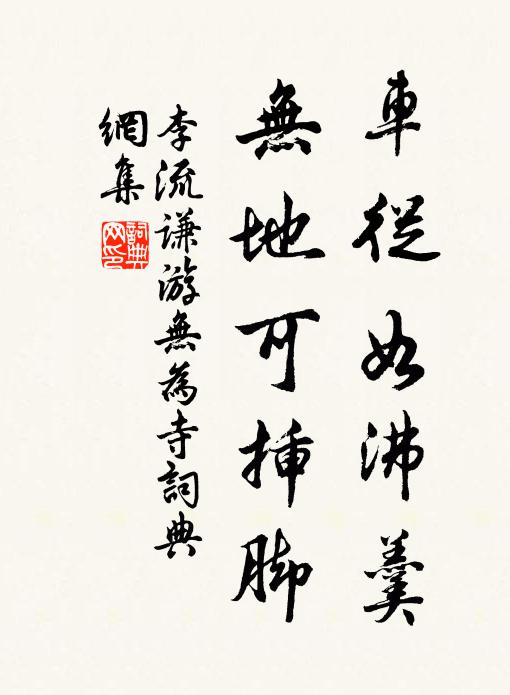 車從如沸羹
無地可挿脚
李流謙游無為寺詞典
網集
詞典
网印